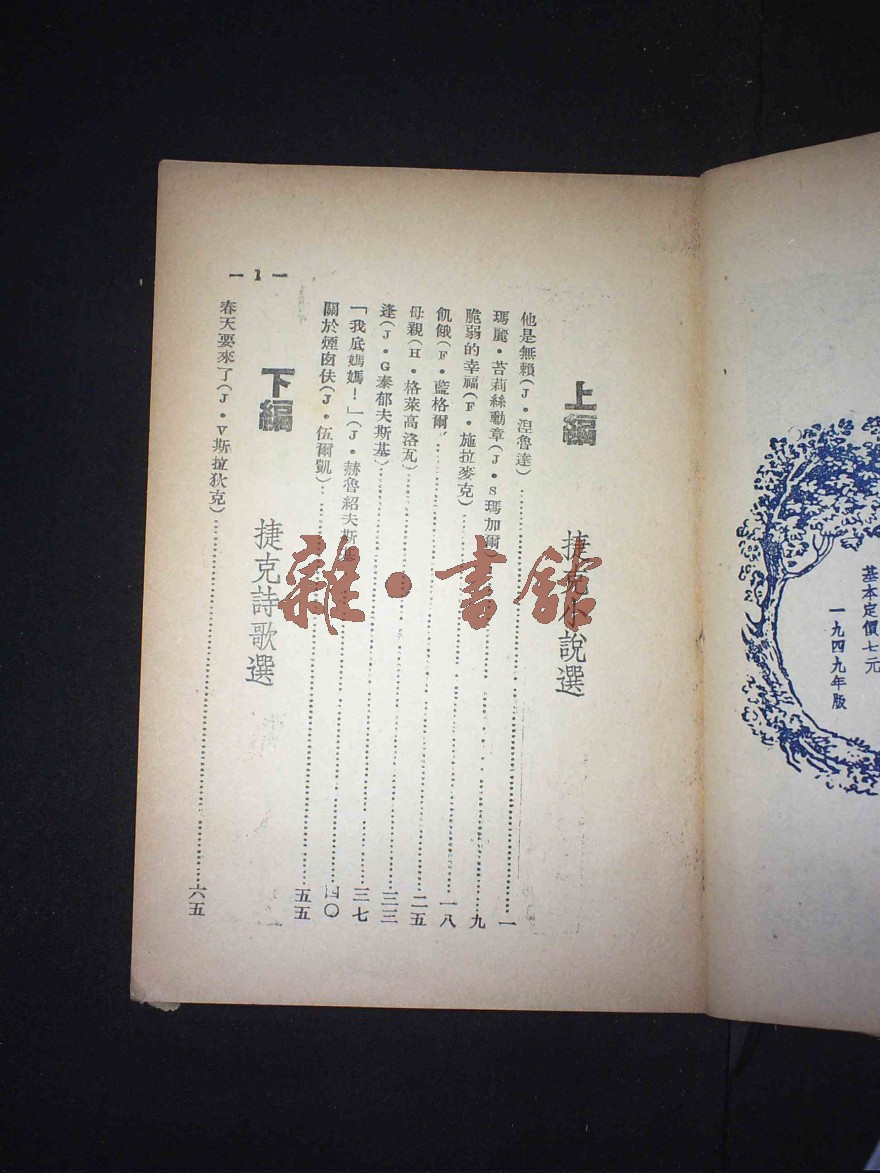 基本定價七元
一九四九年版
上編 捷克小說選
他是無賴(J•涅魯達)……一
瑪麗•苔莉絲勳章(J•S瑪加爾)……九
脆弱的幸福(F•施拉麥克)……一八
飢餓(F•藍格爾……二五
母親(H•格萊高洛瓦)……三三
逢(J•G泰郁夫斯基)……三七
「我底媽媽!」(J•赫魯紹夫斯基……四〇
關於煙囪伕(J•伍爾凱)……五五
下編 捷克詩歌選
春天要來了(J•V斯拉狄克)……六五
— 1 —
雜•書館